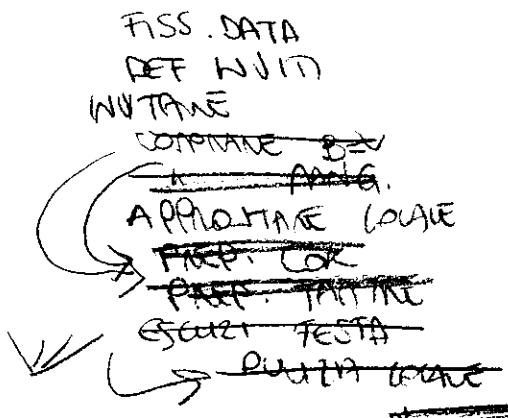 FISS. DATA
DEF INVITI
INVITARE
COMPRARE B
" MANG.
APPRONTARE LOCALE
PREP. COK
PREP. TARTINE
ESEGUZI FESTA
PULIZIA LOCALE